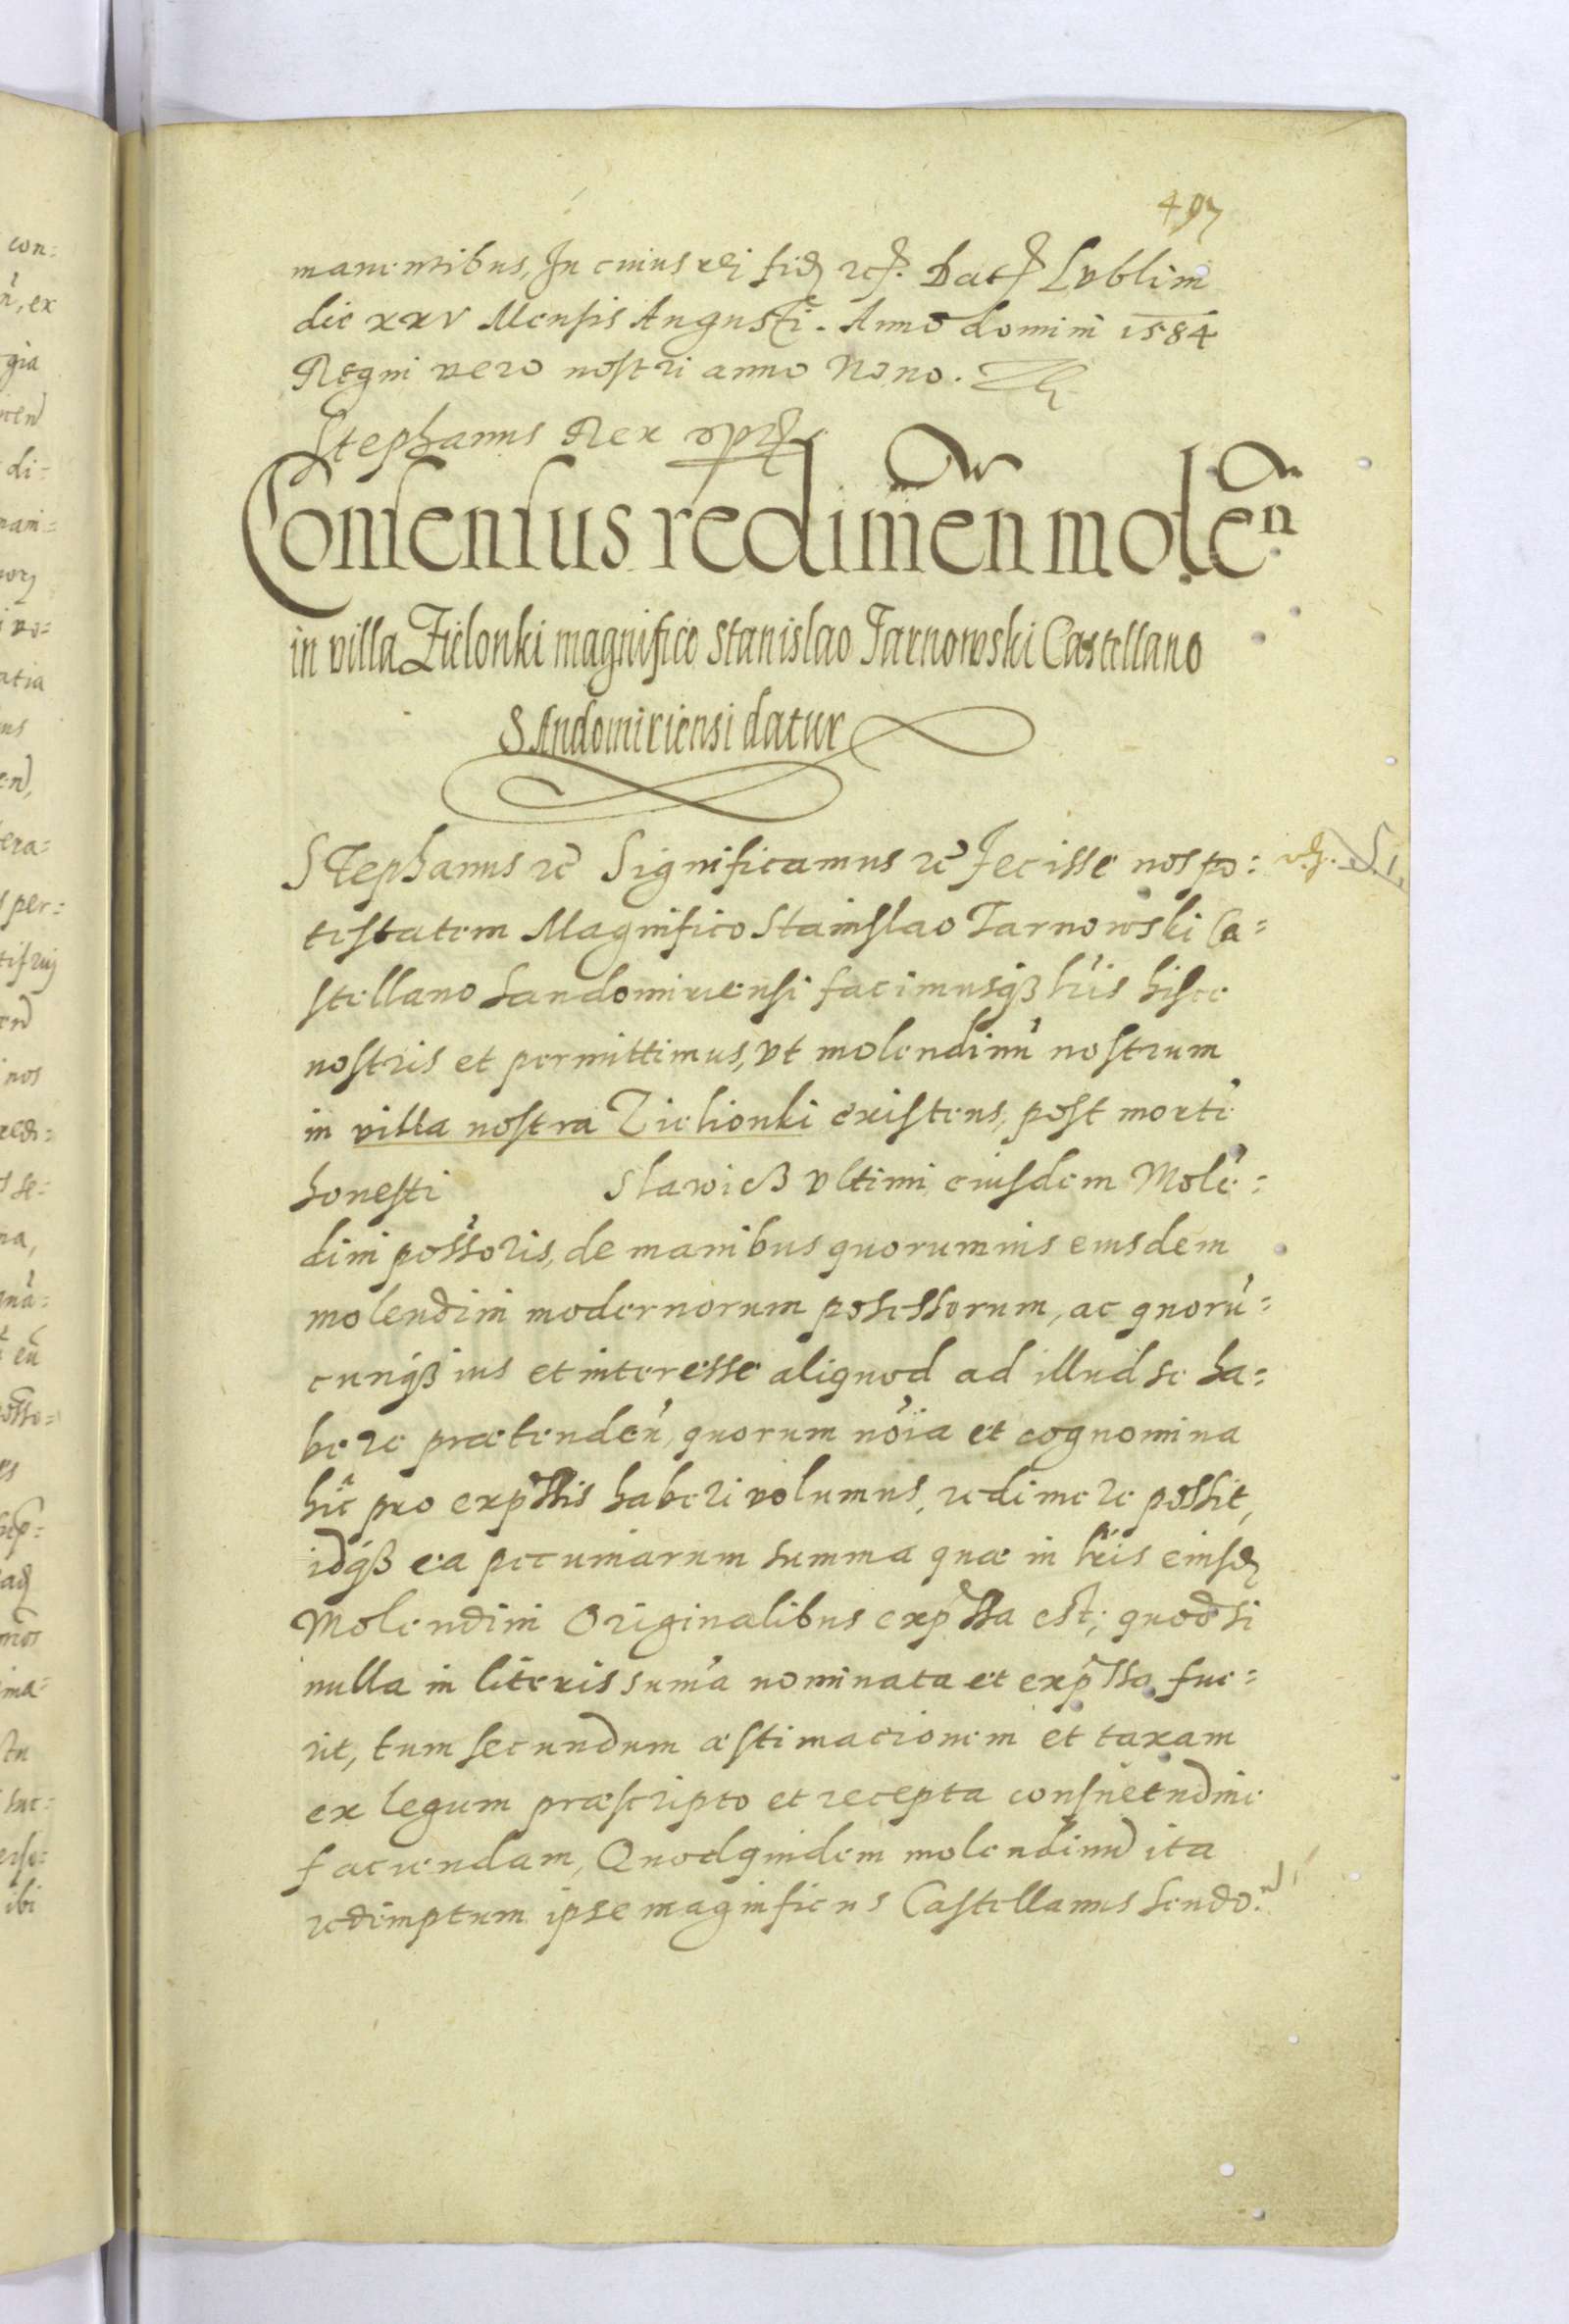 497
manentibus, In cuius rei fid. etc. Dat. Lublini
die xxv Mensis Augusti. Anno domini 1584
Regni vero nostri anno Nono.
Stephanus Rex
Consensus redimen molen
in villa Zielonki magnifico Stanislao Tarnowski Castellano
SAndomiriensi datur
STephanus etc Significamus etc Fecisse nos po:
testatem Magnifico Stanislao Tarnowski Ca=
stellano Sandomiriensi facimusqß lris hisce
nostris et permittimus, vt molendinu nostrum
in villa nostra Zielionki existens, post morte
honesti Slawieß vltimi eiusdem Mole=
dini possoris, de manibus quorumuis eiusdem
molendini modernorum possessorum, ac quoru=
cunqß ius et interesse aliquod ad illud se ha=
bere prætenden, quorum noia et cognomina
hic pro exprssis haberi volumus, redimere possit,
idqß ea pecuniarum summa quæ in lris eiusd
Molendini Originalibus exprssa est; quod si
nulla in literis suma nominata et exprssa fue=
rit, tum secundum æstimacionem et taxam
ex legum præscripto et recepta consuetudine
faciendam, Quodquidem molendinu ita
redemptum ipse magnificus Castellanus Sendo.